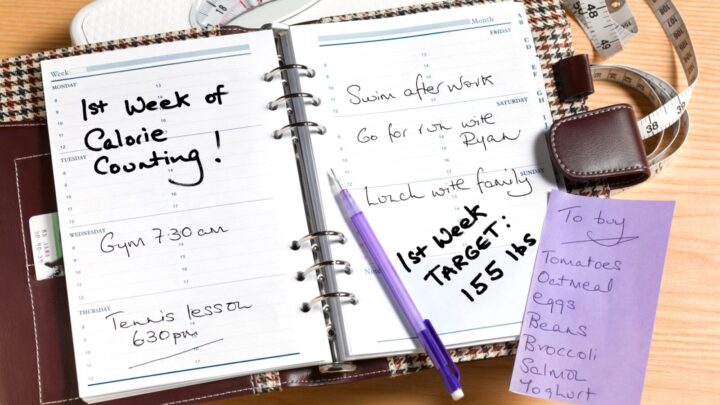 Week
MONDAY
1st Week of
Calorie
Counting!
TUESDAY
WEDNESDAY
Gym 7.30 am
THURSDAY
Tennis lesson
6.30pm
Month
FRIDAY
Swim after work
SATURDAY
Go for run with
Ryan
SUNDAY
Lunch with family
1st Week
TARGET:
155 lbs
To buy
Tomatoes
Oatmeal
eggs
Beans
Broccoli
Salmon
Yoghurt